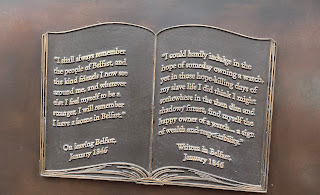 "I shall always remember
the people of Belfast, and
the kind friends I now see
around me, and wherever
else I feel myself to be a
stranger, I will remember
I have a home in Belfast."
On leaving Belfast,
January 1846
"I could hardly indulge in the
hope of someday owning a watch,
yet in those hope-killing days of
my slave life I did think I might
somewhere in the then dim and
shadowy forest, find myself the
happy owner of a watch... a sign
of wealth and respectability."
Written in Belfast,
January 1846